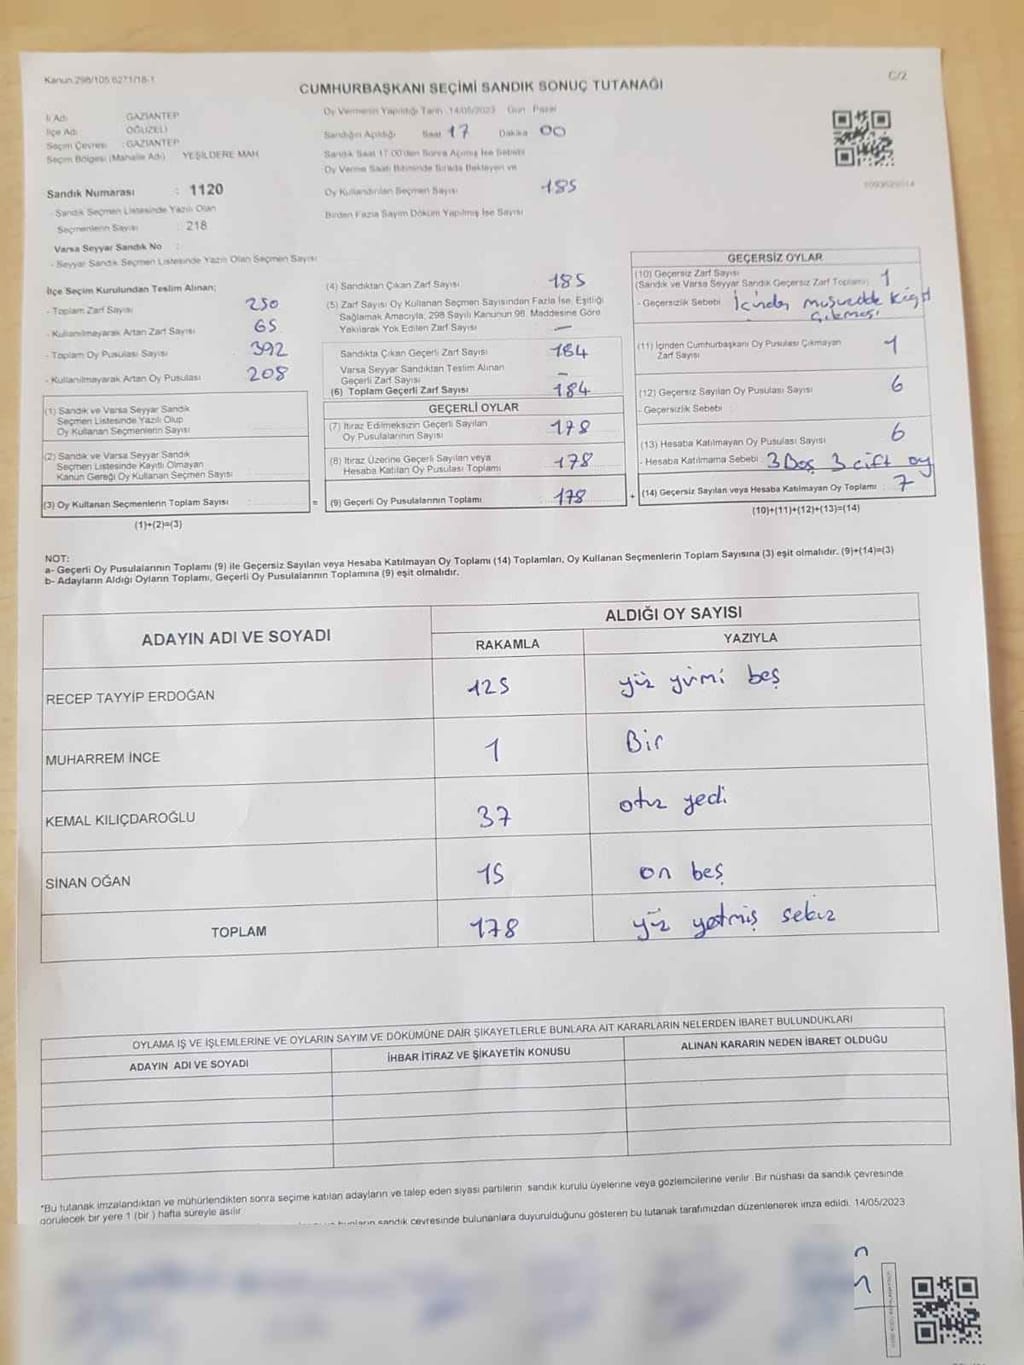 Kanun 298/105 6271/18-1
C/2
CUMHURBAŞKANI SEÇİMİ SANDIK SONUÇ TUTANAĞI
İl Adı : GAZİANTEP
İlçe Adı : OĞUZELİ
Seçim Çevresi : GAZİANTEP
Seçim Bölgesi (Mahalle Adı) YEŞİLDERE MAH
Sandık Numarası : 1120
- Sandık Seçmen Listesinde Yazılı Olan
Seçmenlerin Sayısı : 218
Varsa Seyyar Sandık No :
- Seyyar Sandık Seçmen Listesinde Yazılı Olan Seçmen Sayısı
Oy Vermenin Yapıldığı Tarih 14/05/2023 Gün Pazar
Sandığın Açıldığı Saat 17 Dakika 00
Sandık Saat 17:00'den Sonra Açılmış İse Sebebi
Oy Verme Saati Bitiminde Sırada Bekleyen ve
Oy Kullandırılan Seçmen Sayısı 185
Birden Fazla Sayım Döküm Yapılmış İse Sayısı
İlçe Seçim Kurulundan Teslim Alınan;
- Toplam Zarf Sayısı 250
- Kullanılmayarak Artan Zarf Sayısı 65
- Toplam Oy Pusulası Sayısı 392
- Kullanılmayarak Artan Oy Pusulası 208
(1) Sandık ve Varsa Seyyar Sandık
Seçmen Listesinde Yazılı Olup
Oy Kullanan Seçmenlerin Sayısı
(2) Sandık ve Varsa Seyyar Sandık
Seçmen Listesinde Kayıtlı Olmayan
Kanun Gereği Oy Kullanan Seçmen Sayısı
(3) Oy Kullanan Seçmenlerin Toplam Sayısı =
(1)+(2)=(3)
(4) Sandıktan Çıkan Zarf Sayısı 185
(5) Zarf Sayısı Oy Kullanan Seçmen Sayısından Fazla İse, Eşitliği
Sağlamak Amacıyla, 298 Sayılı Kanunun 98. Maddesine Göre
Yakılarak Yok Edilen Zarf Sayısı —
Sandıkta Çıkan Geçerli Zarf Sayısı 184
Varsa Seyyar Sandıktan Teslim Alınan
Geçerli Zarf Sayısı —
(6) Toplam Geçerli Zarf Sayısı 184
GEÇERLİ OYLAR
(7) İtiraz Edilmeksizin Geçerli Sayılan
Oy Pusulalarının Sayısı 178
(8) İtiraz Üzerine Geçerli Sayılan veya
Hesaba Katılan Oy Pusulası Toplamı 178
(9) Geçerli Oy Pusulalarının Toplamı 178 +
GEÇERSİZ OYLAR
(10) Geçersiz Zarf Sayısı
(Sandık ve Varsa Seyyar Sandık Geçersiz Zarf Toplamı) 1
- Geçersizlik Sebebi İçinden
(11) İçinden Cumhurbaşkanı Oy Pusulası Çıkmayan
Zarf Sayısı 1
(12) Geçersiz Sayılan Oy Pusulası Sayısı 6
- Geçersizlik Sebebi
(13) Hesaba Katılmayan Oy Pusulası Sayısı 6
- Hesaba Katılmama Sebebi 3 Boş 3 çift oy
(14) Geçersiz Sayılan veya Hesaba Katılmayan Oy Toplamı 7
(10)+(11)+(12)+(13)=(14)
NOT:
a- Geçerli Oy Pusulalarının Toplamı (9) ile Geçersiz Sayılan veya Hesaba Katılmayan Oy Toplamı (14) Toplamları, Oy Kullanan Seçmenlerin Toplam Sayısına (3) eşit olmalıdır. (9)+(14)=(3)
b- Adayların Aldığı Oyların Toplamı, Geçerli Oy Pusulalarının Toplamına (9) eşit olmalıdır.
ADAYIN ADI VE SOYADI
ALDIĞI OY SAYISI
RAKAMLA YAZIYLA
RECEP TAYYİP ERDOĞAN 125 yüz yirmi beş
MUHARREM İNCE 1 Bir
KEMAL KILIÇDAROĞLU 37 otuz yedi
SİNAN OĞAN 15 on beş
TOPLAM 178 yüz yetmiş sekiz
OYLAMA İŞ VE İŞLEMLERİNE VE OYLARIN SAYIM VE DÖKÜMÜNE DAİR ŞİKAYETLERLE BUNLARA AİT KARARLARIN NELERDEN İBARET BULUNDUKLARI
ADAYIN ADI VE SOYADI İHBAR İTİRAZ VE ŞİKAYETİN KONUSU ALINAN KARARIN NEDEN İBARET OLDUĞU
*Bu tutanak imzalandıktan ve mühürlendikten sonra seçime katılan adayların ve talep eden siyasi partilerin sandık kurulu üyelerine veya gözlemcilerine verilir. Bir nüshası da sandık çevresinde
görülecek bir yere 1 (bir) hafta süreyle asılır.
sandık çevresinde bulunanlara duyurulduğunu gösteren bu tutanak tarafımızdan düzenlenerek imza edildi. 14/05/2023